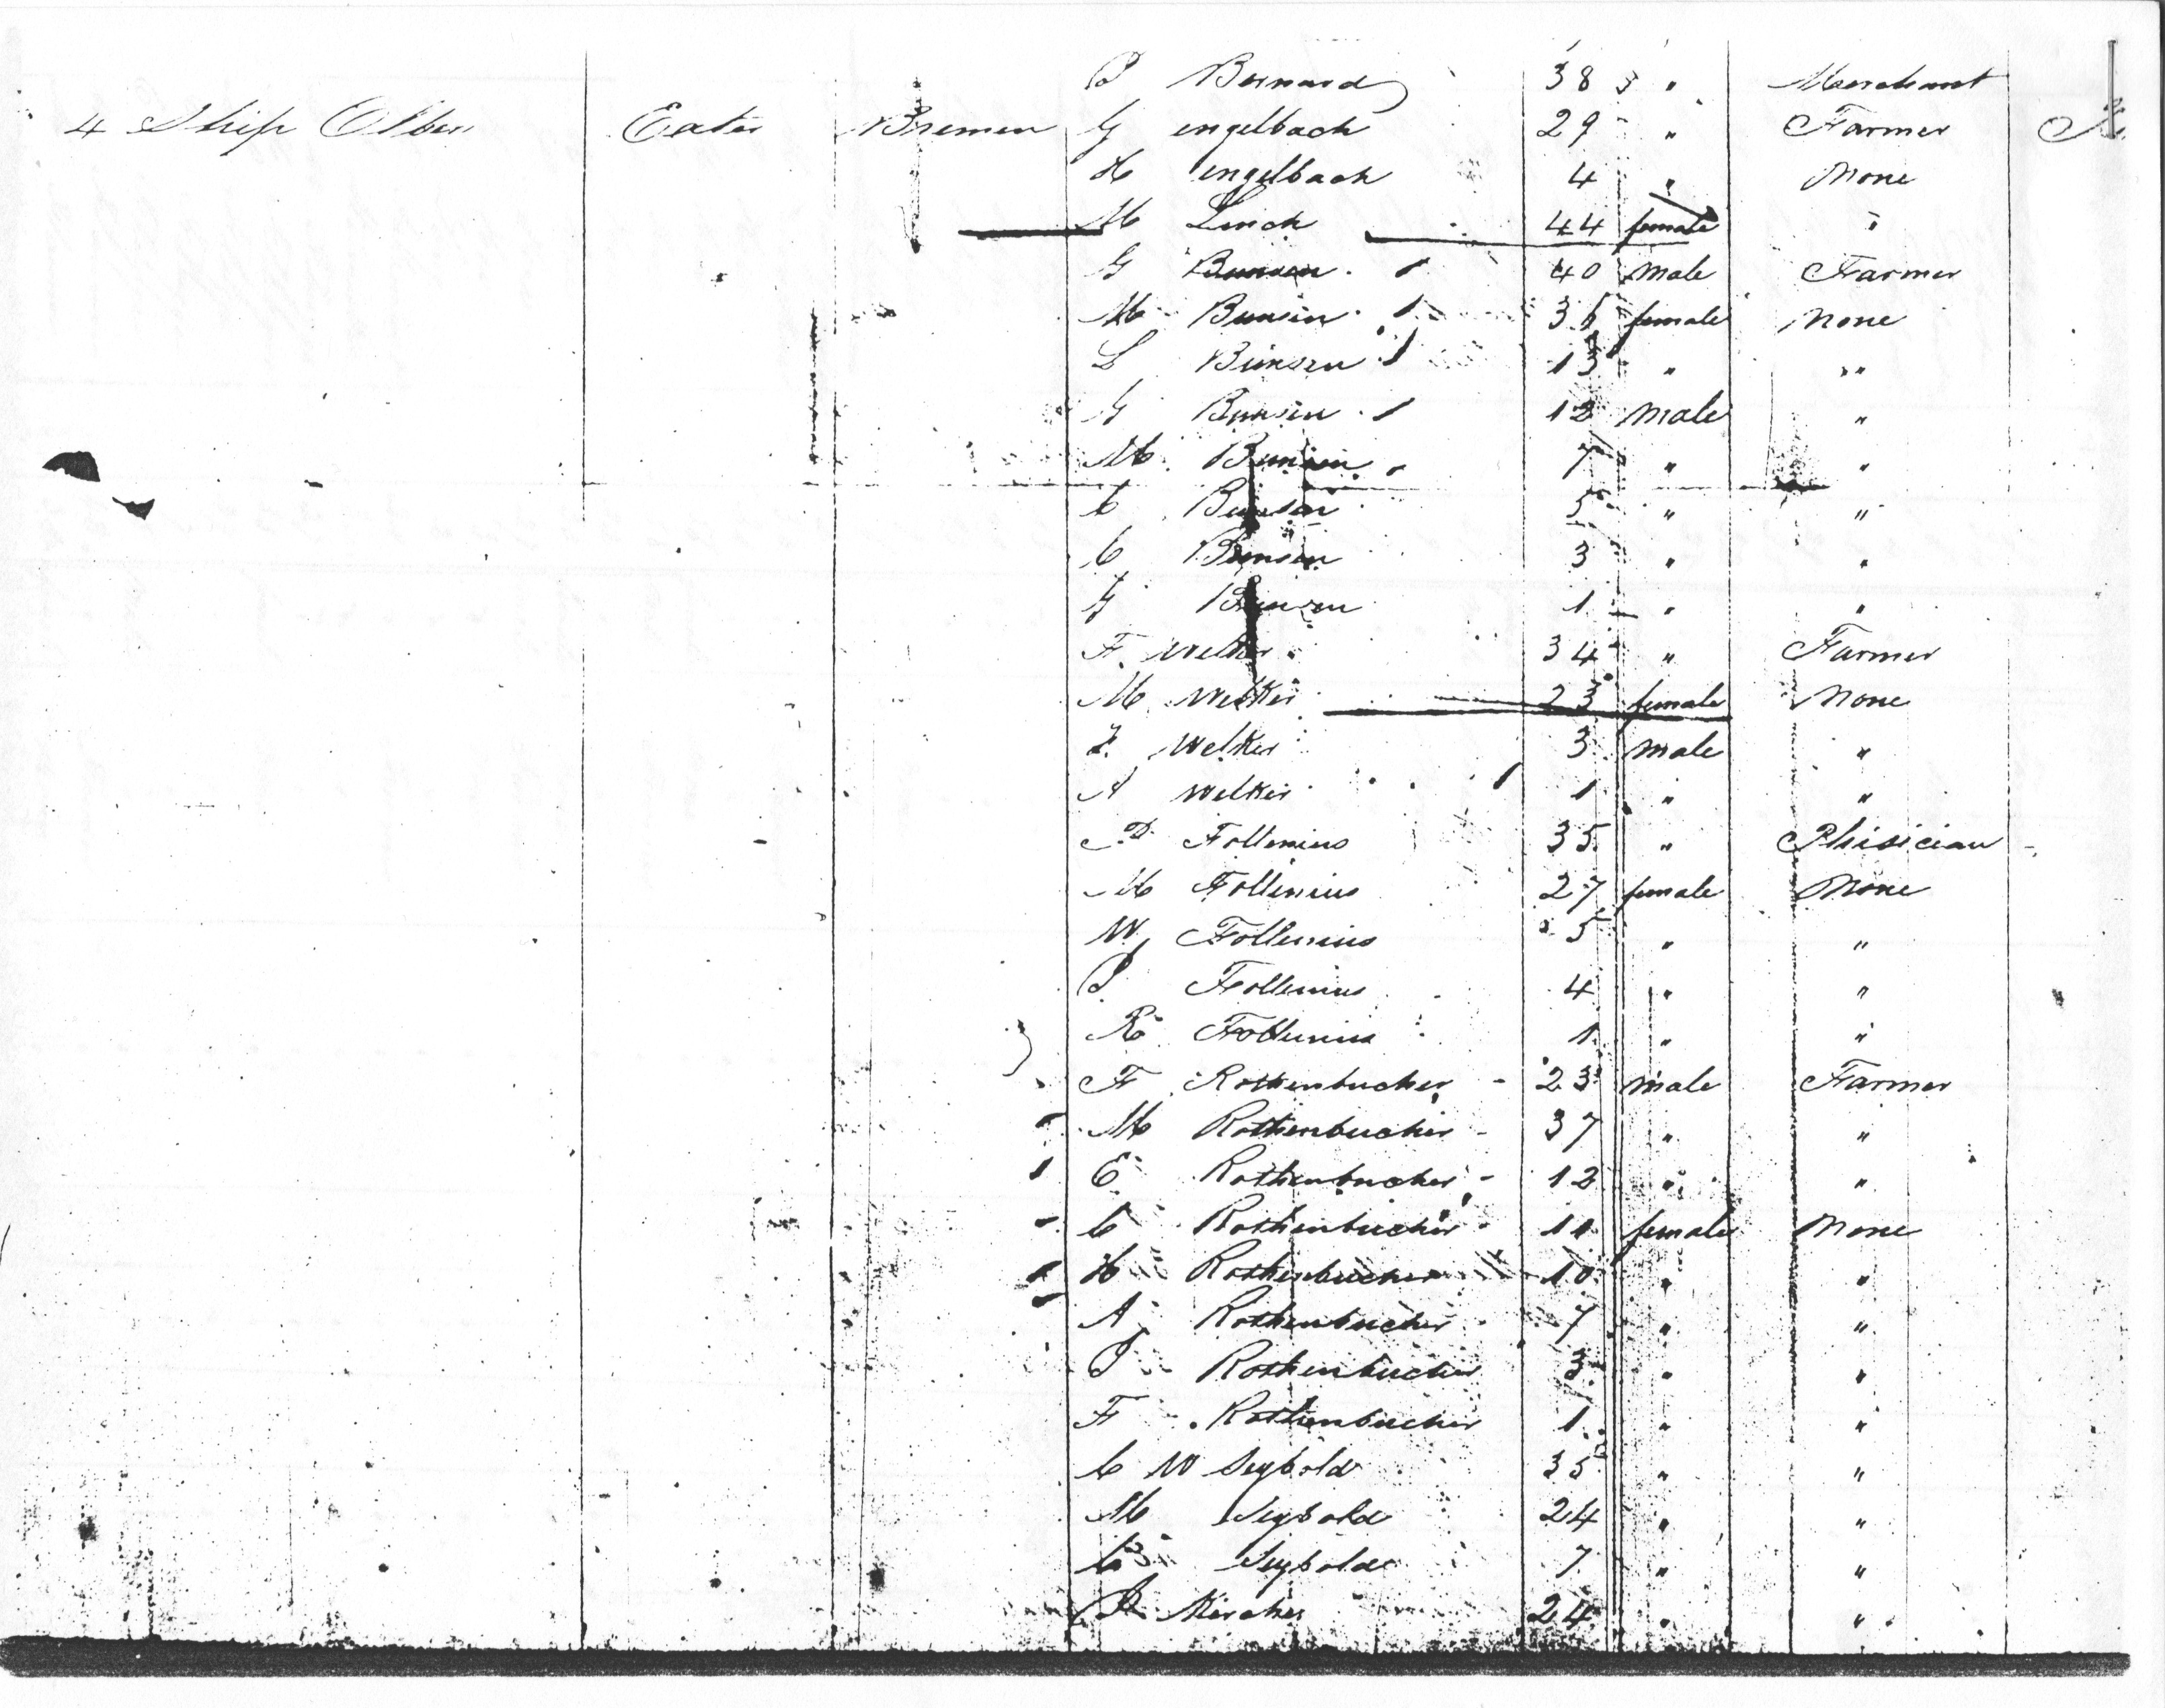 P Bernard 38 " Merchant
4 Ship Olbers Exter Bremen G engelbach 29 " Farmer
H engelbach 4 " None
M Linck 44 female "
G Bunsen 40 male Farmer
M Bunsen 36 female None
L Bunsen 13 " "
G Bunsen 12 male "
M Bunsen 7 " "
C Bunsen 5 " "
C Bunsen 3 " "
G Bunsen 1 " "
F. Welker 34 " Farmer
M Welker 23 female None
F. Welker 3 male "
A Welker 1 " "
Follenius 35 " Phisician
M Follenius 27 female None
W Follenius 5 " "
P Follenius 4 " "
R Follenius 1 " "
F Rothenbucher 23 male Farmer
M Rothenbucher 37 " "
E Rothenbucher 12 " "
C Rothenbucher 11 female None
H Rothenbucher 10 " "
A Rothenbucher 7 " "
P Rothenbucher 3 " "
F Rothenbucher 1 " "
C W Seybold 35 " "
M Seybold 24 " "
C Seybold 7 " "
Kircher 24 " "